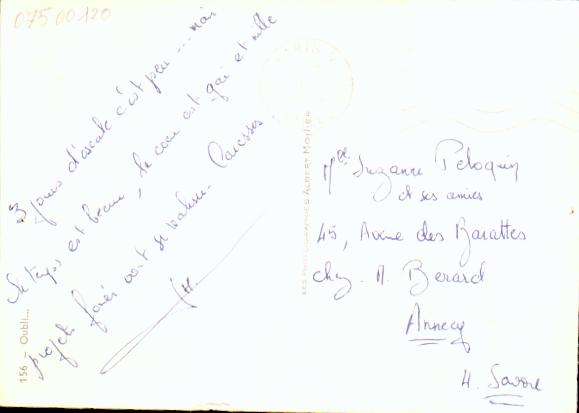 07500120
3 jours d'escale c'est peu ... mais
le temps est beau, le cœur est gai et mille
projets furés vont se réaliser. Caresses.
156 - Oubli...
LES PHOTOGRAPHIES ALBERT MONIER
PARIS V
Mlle Suzanne Peloquin
et ses amies
45, Avenue des Barattes
chez M. Berard
Annecy
H. Savoie